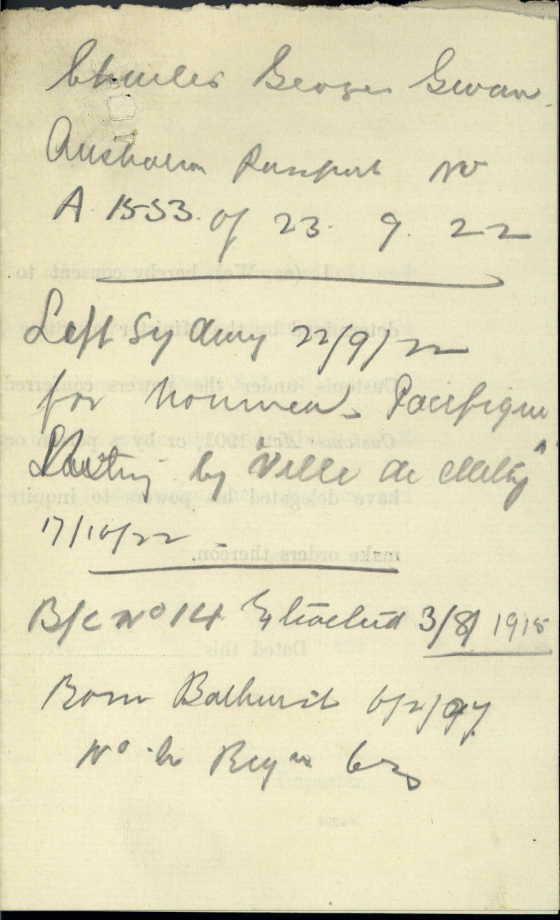 Charles George Gwan.
Australian Passport No
A. 1553. of 23. 9. 22
Left Sydney 22/9/22
for Noumea. Pacifique
by "Ville de
17/10/22
B/C No 14 Extracted 3/8/1915
Born Bathurst 6/2/97
No in Regr 620